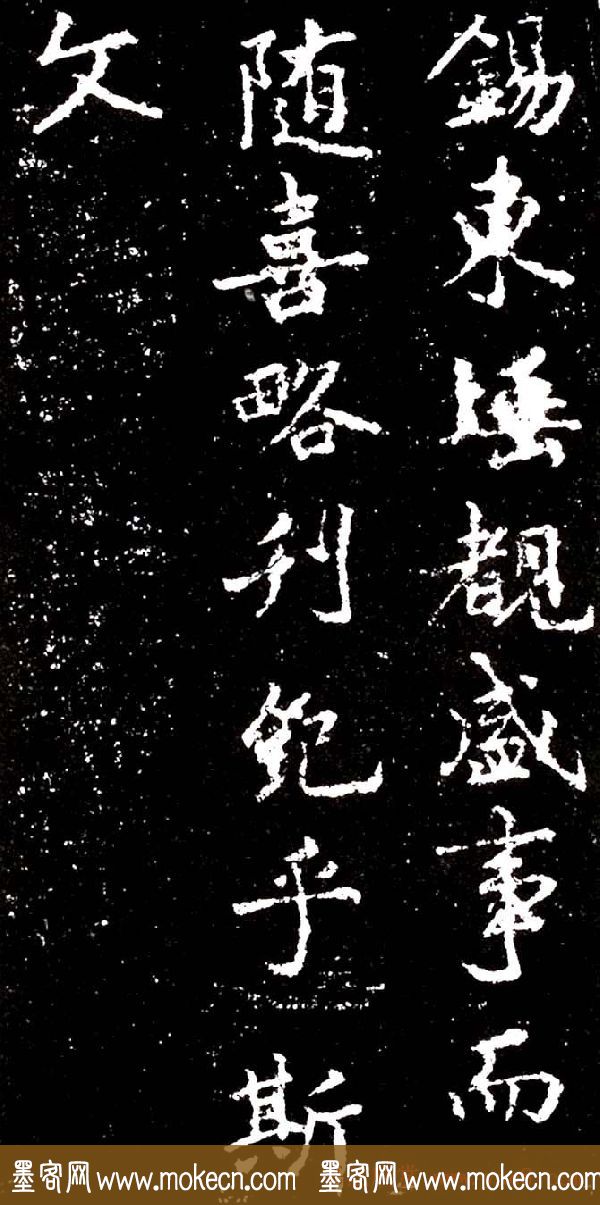 錫東垂覩盛事而
随喜略刊紀乎斯
文
墨客网 www.mokecn.com 墨客网 www.mokecn.com